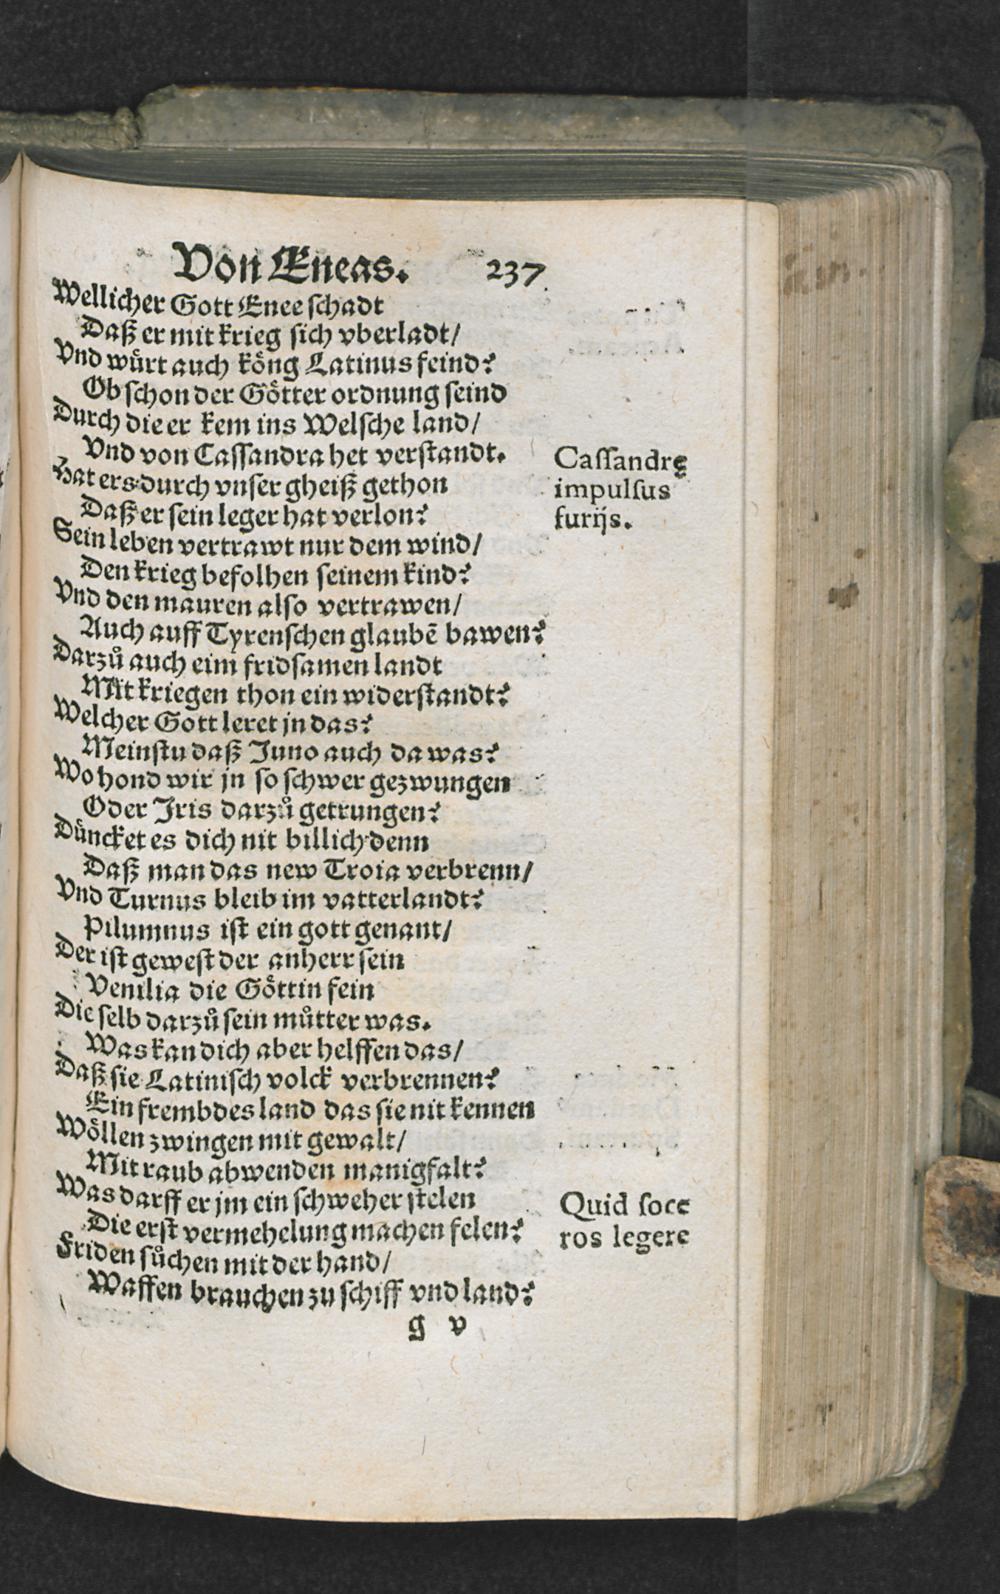 Von Eneas. 237
Wellicher Gott Enee schadt
Daß er mit krieg sich vberladt/
Vnd wu̍rt auch ko̍ng Latinus feind?
Ob schon der Go̍tter ordnung seind
Durch die er kem ins Welsche land/
Vnd von Cassandra het verstandt.
Hat ers durch vnser gheiß gethon
Daß er sein leger hat verlon?
Sein leben vertrawt nur dem wind/
Den krieg befolhen seinem kind?
Vnd den mauren also vertrawen/
Auch auff Tyrenschen glaubē bawen?
Darzů auch eim fridsamen landt
Mit kriegen thon ein widerstandt?
Welcher Gott leret jn das?
Meinstu daß Juno auch da was?
Wo hond wir jn so schwer gezwungen
Oder Iris darzů getrungen?
Düncket es dich nit billich denn
Daß man das new Troia verbrenn/
Vnd Turnus bleib im vatterlandt?
Pilumnus ist ein gott genant/
Der ist gewest der anherr sein
Venilia die Göttin fein
Die selb darzů sein můtter was.
Was kan dich aber helffen das/
Daß sie Latinisch volck verbrennen?
Ein frembdes land das sie nit kennen
Wöllen zwingen mit gewalt/
Mit raub abwenden manigfalt?
Was darff er jm ein schweher stelen
Die erst vermehelung machen felen?
Friden sůchen mit der hand/
Waffen brauchen zu schiff vnd land?
g v
Cassandrę
impulsus
furijs.
Quid soce
ros legere